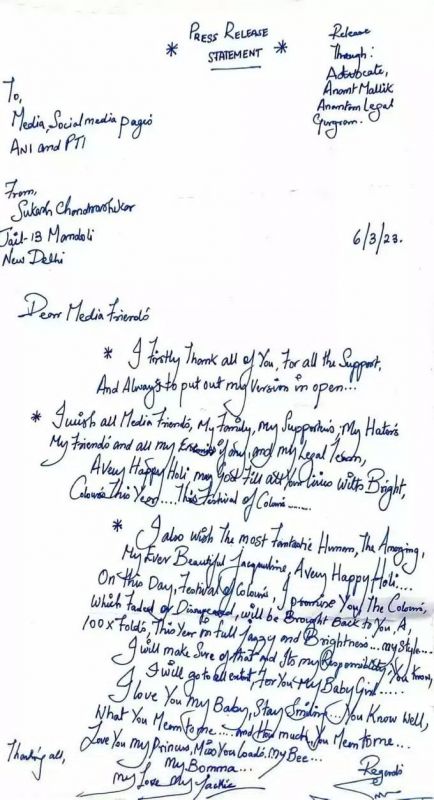 * PRESS RELEASE *
STATEMENT
Release
Through:
Advocate,
Anant Mallik
Anantam Legal
Gurgram.
To,
Media, Social media pages
ANI and PTI
From,
Sukash Chandrashekar
Jail-13 Mandoli
New Delhi
6/3/23.
Dear Media Friends
* I Firstly Thank all of You, For all the Support,
And Always to put out my version in open...
* I wish all Media Friends, My Family, my Supporters, My Haters
My Friends and all my Enemies if any, and my Legal Team,
A Very Happy Holi, may God Fill all Your lives with Bright,
Colours This Year.... This Festival of Colours......
* I also wish The most Fantastic Human, The Amazing,
My Ever Beautiful Jacqueline, A very Happy Holi...
On this Day, Festival of Colours, I promise You, The Colours,
which Faded or Disappeared, will be Brought Back to You, A,
100x Folds, This Year in full Jazzy and Brightness... my Style...
I will make Sure of that and Its my Responsibility, You Know,
I will go to all extent For You My Baby Girl.....
I love You my Baby, Stay Smiling... You Know Well,
What You Mean to me.... and How much, You Mean to me...
Love You my Princess, Miss You Loads, My Bee...
My Bomma...
my Love My Jackie
Thanking all,
Regards